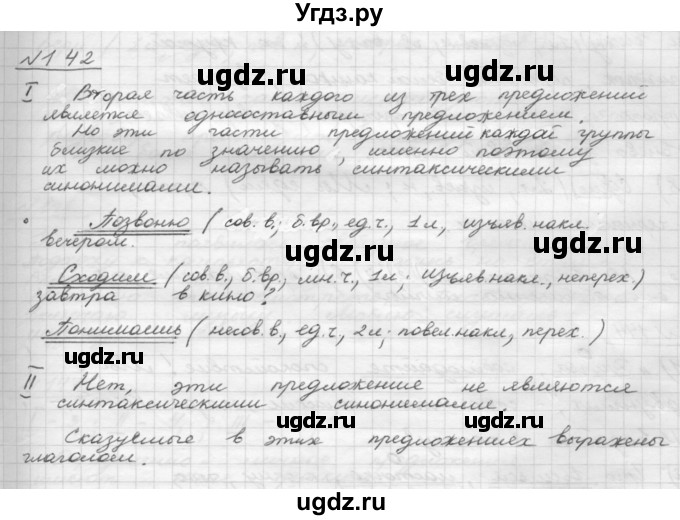 Угдз.ру
№142
I Вторая часть каждого из трех предложений
является односоставным предложением.
Но эти части предложений каждой группы
близкие по значению, именно поэтому
их можно называть синтаксическими
синонимами.
Позвоню (сов. в.; б. вр., ед. ч., 1 л., изъяв. накл.
вечером.
Сходим (сов. в., б. вр., мн. ч., 1 л.; изъяв. накл., неперех.)
завтра в кино?
Понимаешь (несов. в., ед. ч., 2 л.; повел. накл., перех.)
II Нет, эти предложение не являются
синтаксическими синонимами.
Сказуемые в этих предложениях выражены
глаголом.
ugdz.ru
ugdz.ru
ugdz.ru
ugdz.ru
ugdz.ru
ugdz.ru
ugdz.ru
ugdz.ru
ugdz.ru
ugdz.ru
ugdz.ru